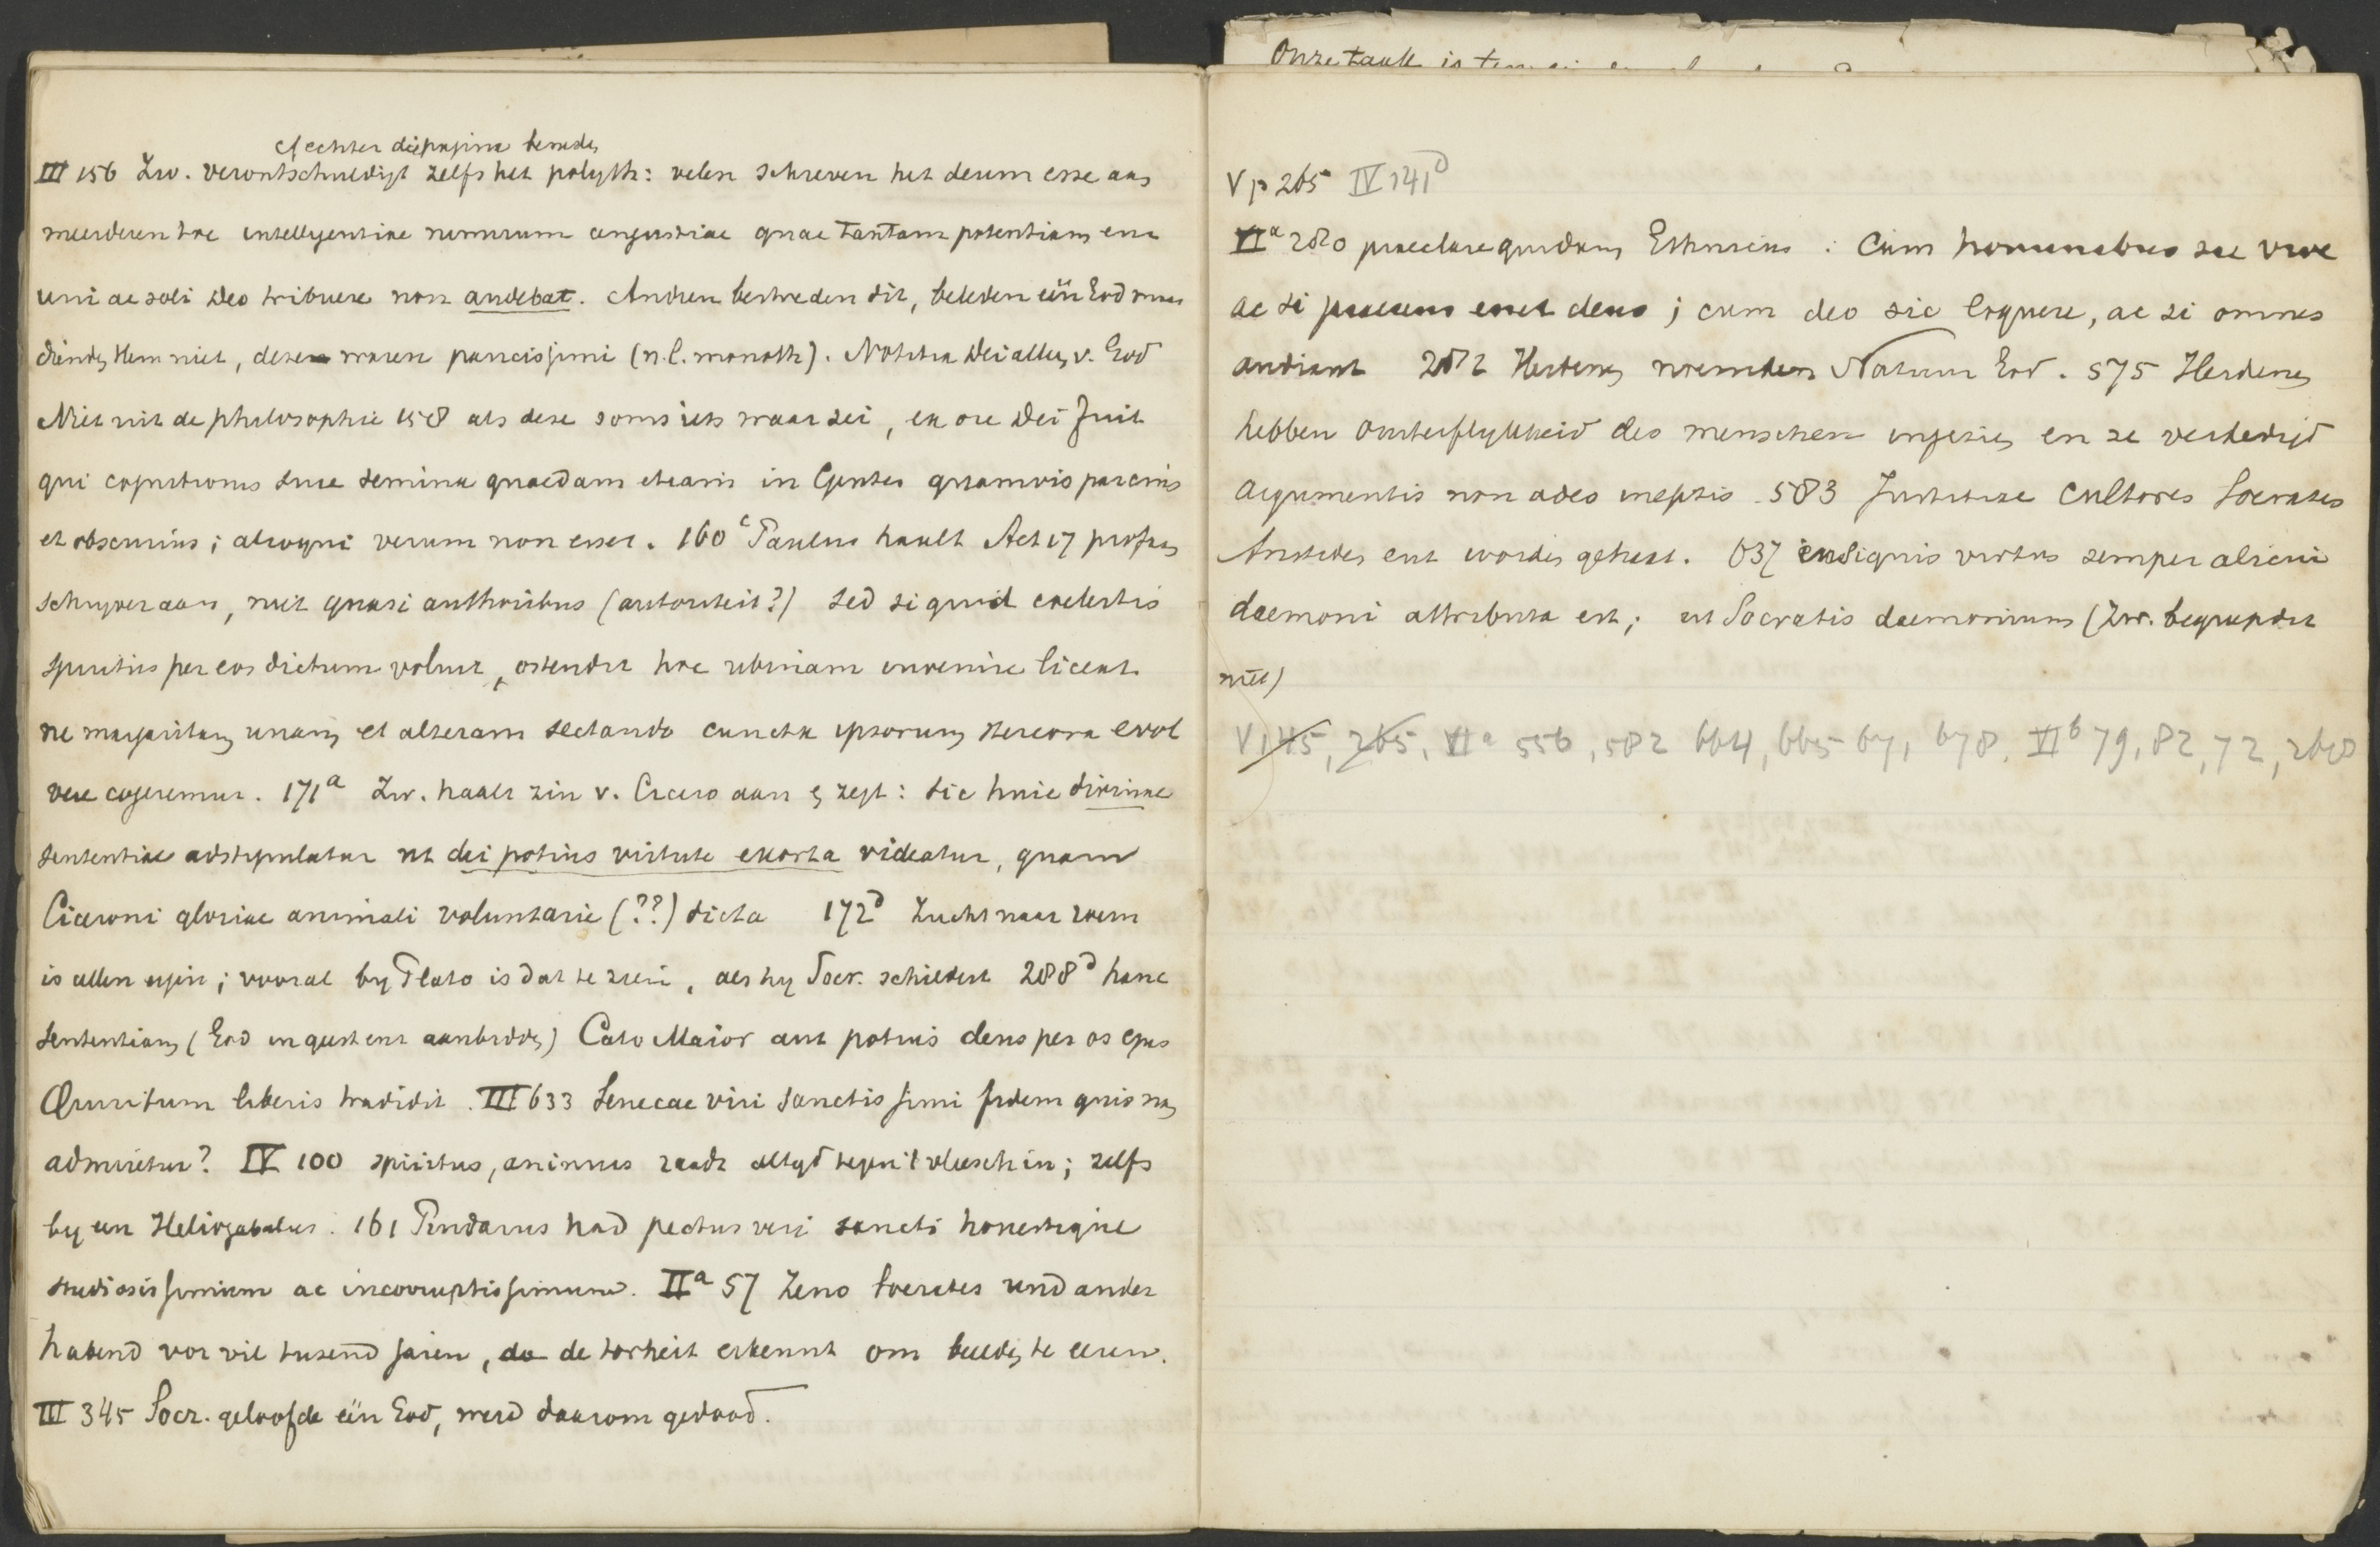 Onze taak is
Achter die pagina beneden
III 156 Zw. verontschuldigt zelfs het polyth: velen schreven het deum esse aan
meerderen toe intelligentiae nimirum angustiae quae tantam potentiam
uni ac soli Deo tribuere non audebat. Andren bestreden dit, beleden één God maar
dienden Hem niet, dezen waren paucissimi (n.l. monoth). Notitia Dei alleen v. God
Niet uit de philosophie 158 als deze soms iets waar zei, ex ore Dei fuit
qui cognitionis suae semina quaedam etiam in Gentes quamvis parcius
et obscurius; alioqui verum non esset. 160 c Paulus haalt Act 17 profaan
schryver aan, niet quasi authoribus (autoriteit?) sed si quid coelestis
spiritus per eos dictum voluit, ostendit hoc ubinam invenire liceat
ne margaritam unam et alteram sectando cuncta ipsorum stercora evol
vere cogeremur. 171a Zw. haalt zin v. Cicero aan & zegt: sic huic divinae
sententiae adstipulatur ut dei potius virtute exorta videatur, quam
Ciceroni gloriae animali voluntarie (??) dicta 172d Zucht naar roem
is allen eigen; vooral by Plato is dat te zien, als hy Socr. schildert 288d hanc
sententiam (God in geest enz aanbidden) Cato Maior aut potius deus per os ejus
Quiritum liberis tradidit. III 633 Senecae viri sanctissimi fidem quis non
admiretur? IV 100 spiritus, animus raadt altyd tegen 't vleesch in; zelfs
by een Heliogabalus. 161 Pindarus had pectus veri sancti honestique
studiosissimum ac incorruptissimum. IIa 57 Zeno Socrates und ander
habend vor vil tusend jaren, de torheit erkennt om beelden te eeren.
III 345 Socr. geloofde één God, werd daarom gedood.
V p 265 IV 141d
VIa 280 praeclare quidam Ethnicus: Cum hominibus sic vive
ac si praesens esset deus; cum deo sic loquere, ac si omnes
audiant 282 Heidenen noemden Natuur God. 575 Heidenen
hebben onsterflykheid des menschen ingezien en ze verdedigd
argumentis non adeo ineptis. 583 Justitiae cultores Socrates
Aristides enz worden gehaat. 637 insignis virtus semper alicui
daemoni attributa est; ut Socratis daemonium (Zw. begrypdit
niet)
V 145, 265, VIa 556, 582 664, 665 671, 678, VIb 79, 82, 72,